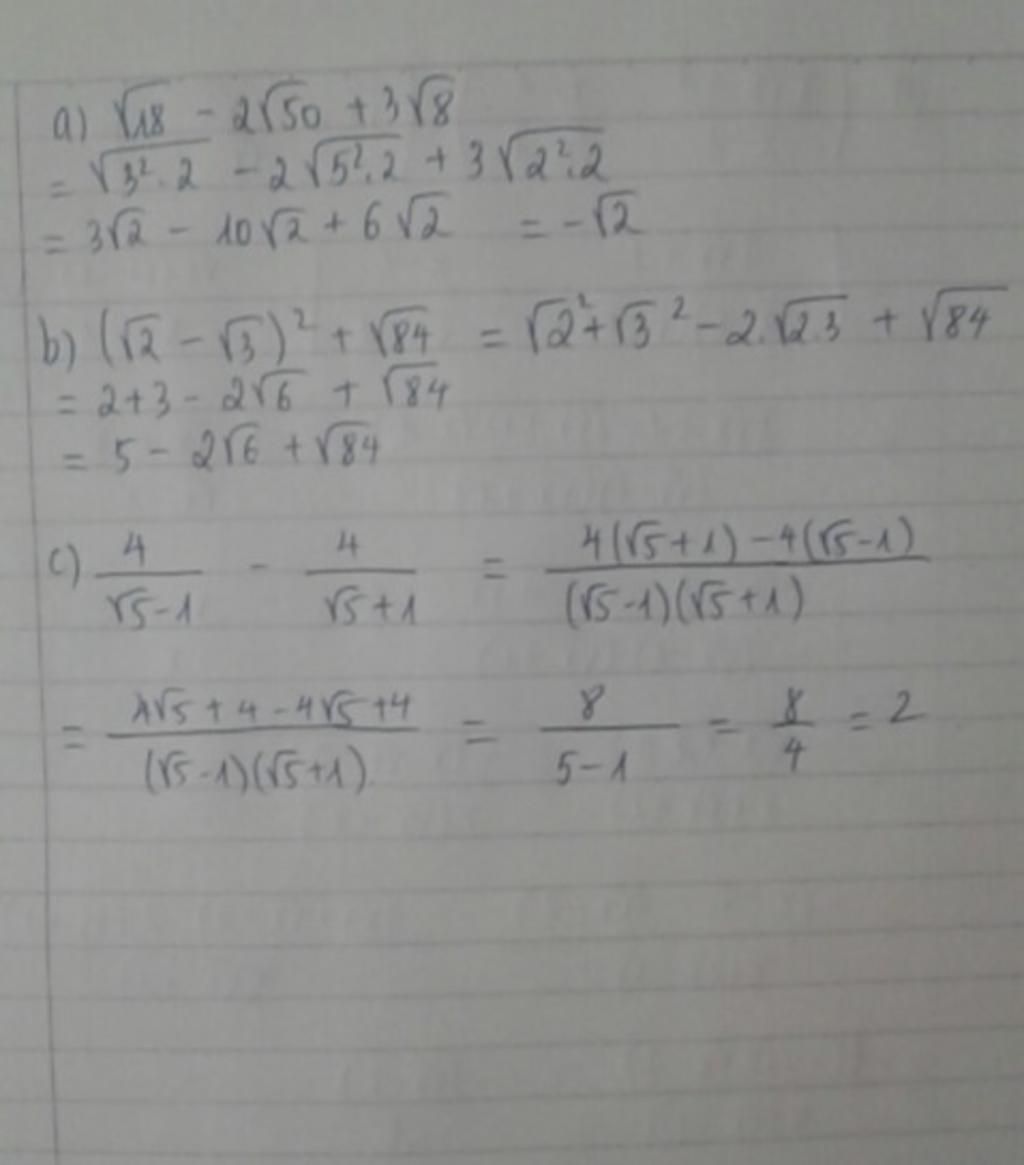 a) √18 - 2√50 + 3√8
= √3².2 - 2√5².2 + 3√2².2
= 3√2 - 10√2 + 6√2 = -√2
b) (√2 - √3)² + √84 = √2² + √3² - 2.√2.3 + √84
= 2+3 - 2√6 + √84
= 5 - 2√6 + √84
c) 4/(√5-1) - 4/(√5+1) = (4(√5+1) - 4(√5-1))/((√5-1)(√5+1))
= (4√5+4-4√5+4)/((√5-1)(√5+1)) = 8/(5-1) = 8/4 = 2